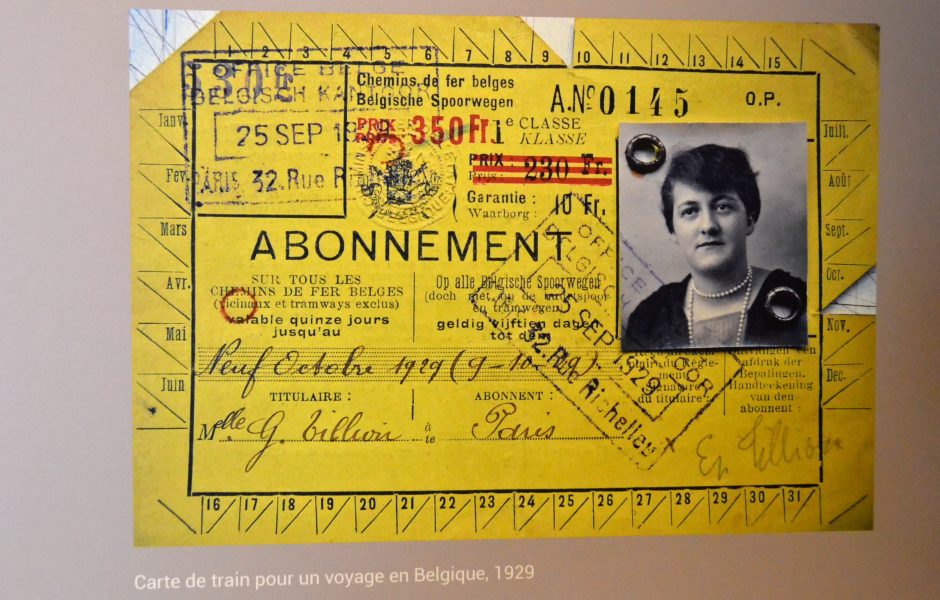 1 2 3 4 5 6 7 8 9 10 11 12 13 14 15
OFFICE BELGE
BELGISCH KANTOOR
25 SEP 1929
PARIS 32. Rue R
Chemins de fer belges
Belgische Spoorwegen
A.Nº 0145
O.P.
PRIX PRIJS 350 Fr.
1e CLASSE
KLASSE
PRIX : 230 Fr.
Prijs :
Garantie : 10 Fr.
Waarborg :
ABONNEMENT
SUR TOUS LES
CHEMINS DE FER BELGES
(vicinaux et tramways exclus)
valable quinze jours
jusqu'au
Op alle Belgische Spoorwegen
(doch niet op de buurtspoor
en tramwegen)
geldig vijftien dagen
tot den
Neuf Octobre 1929 (9-10-29).
TITULAIRE :
ABONNENT :
Melle G. Tillion à te Paris
OFFICE
BELGISCH
SEP 1929
32. Rue Richelieu
OOR
plair du Régle-
ment
Signature
du titulaire :
Ontvangen een
afdruk der
Bepalingen.
Handteekening
van den
abonnent :
Tillion
Janv.
Fév.
Mars
Avr.
Mai
Juin
Juill.
Août
Sept.
Oct.
Nov.
Déc.
16 17 18 19 20 21 22 23 24 25 26 27 28 29 30 31
Carte de train pour un voyage en Belgique, 1929